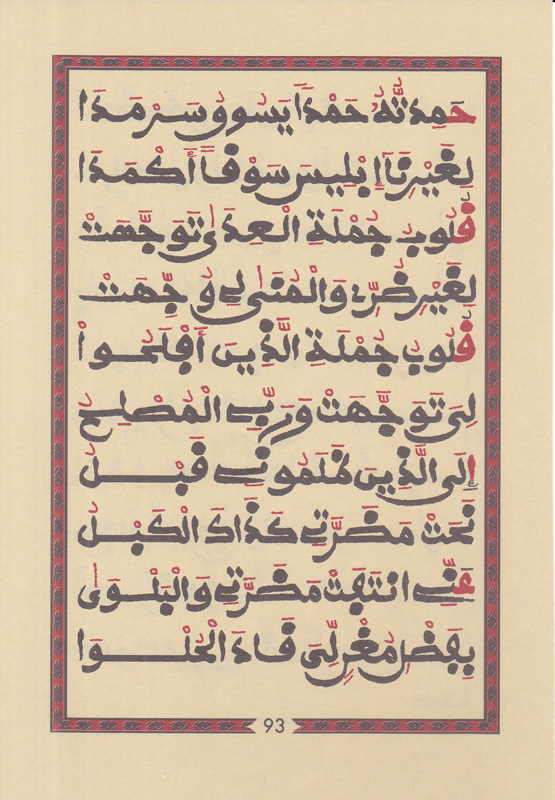 حَمِدتُّهُ حَمْدًا يَسُووُ سَرْمَدَا
لِغَيْرِنَا إِبْلِيسَ سَوْفًا أَكْمَدَا
فُلُوبُ جُمْلَةِ الْعِدَىٰ تَوَجَّهَتْ
لِغَيْرِ ضُرِّے وَالْمُنَىٰ لِے وُجِّهَتْ
فُلُوبُ جُمْلَةِ الَّذِينَ أَفْلَحُواْ
لِىَ تَوَجَّهَتْ وَرَبِّے الْمُصْلِحُ
إِلَى الَّذِينَ ظَلَمُونِے فَبْلُ
نَحَتْ مَضَرَّتِے كَذَاكَ الْكَبْلُ
عَنِّے انتَفَتْ مَضَرَّتِے وَالْبَلْوَىٰ
بِفَضْلِ مُغْنٍ لِّىَ فَادَ الْحُلْوَا
93